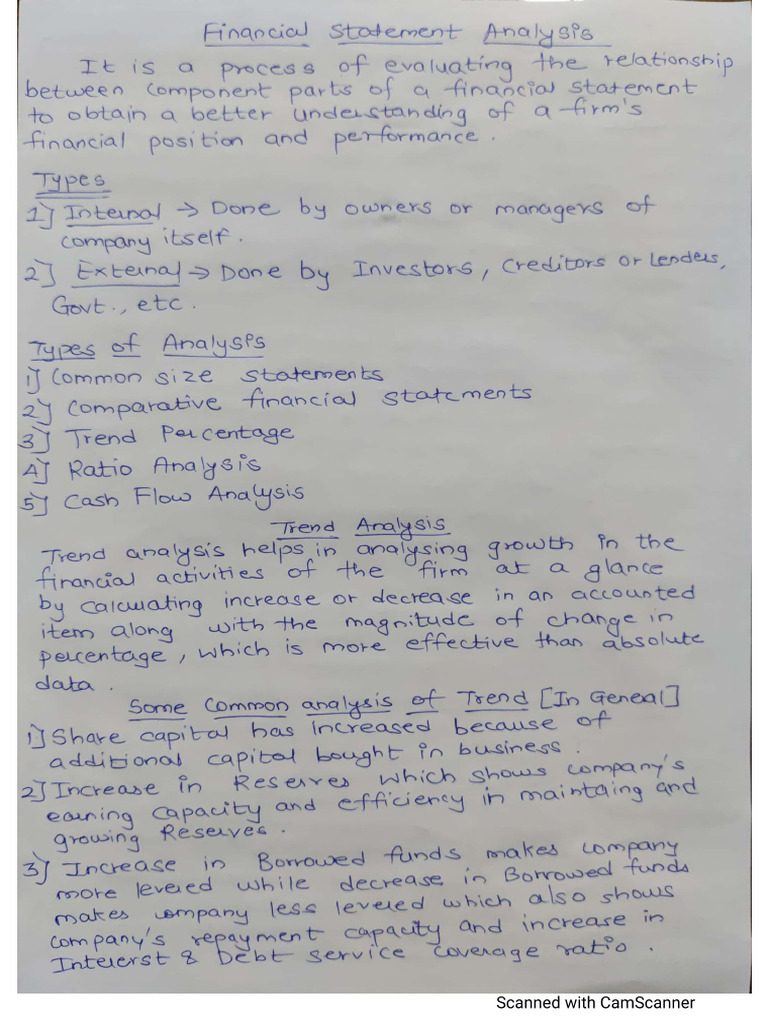 Financial Statement Analysis
It is a process of evaluating the relationship
between component parts of a financial statement
to obtain a better understanding of a firm's
financial position and performance.
Types
1] Internal → Done by owners or managers of
company itself.
2] External → Done by Investors, Creditors or Lenders,
Govt., etc.
Types of Analysis
1] Common size statements
2] Comparative financial statements
3] Trend Percentage
4] Ratio Analysis
5] Cash Flow Analysis
Trend Analysis
Trend analysis helps in analysing growth in the
financial activities of the firm at a glance
by calculating increase or decrease in an accounted
item along with the magnitude of change in
percentage, which is more effective than absolute
data.
Some Common analysis of Trend [In Geneal]
1] Share capital has increased because of
additional capital bought in business.
2] Increase in Reserves which shows company's
earning capacity and efficiency in maintaing and
growing Reserves.
3] Increase in Borrowed funds makes company
more levered while decrease in Borrowed funds
makes company less levered which also shows
company's repayment capacity and increase in
Intererst & Debt service coverage ratio.
Scanned with CamScanner